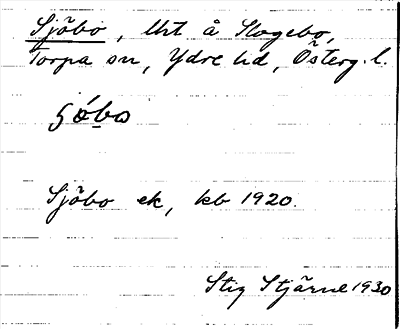 Sjöbo, lht å Skogebo,
Torpa sn, Ydre hd, Österg. l.
Sjöbo ek, kb 1920.
Stig Stjärne 1930